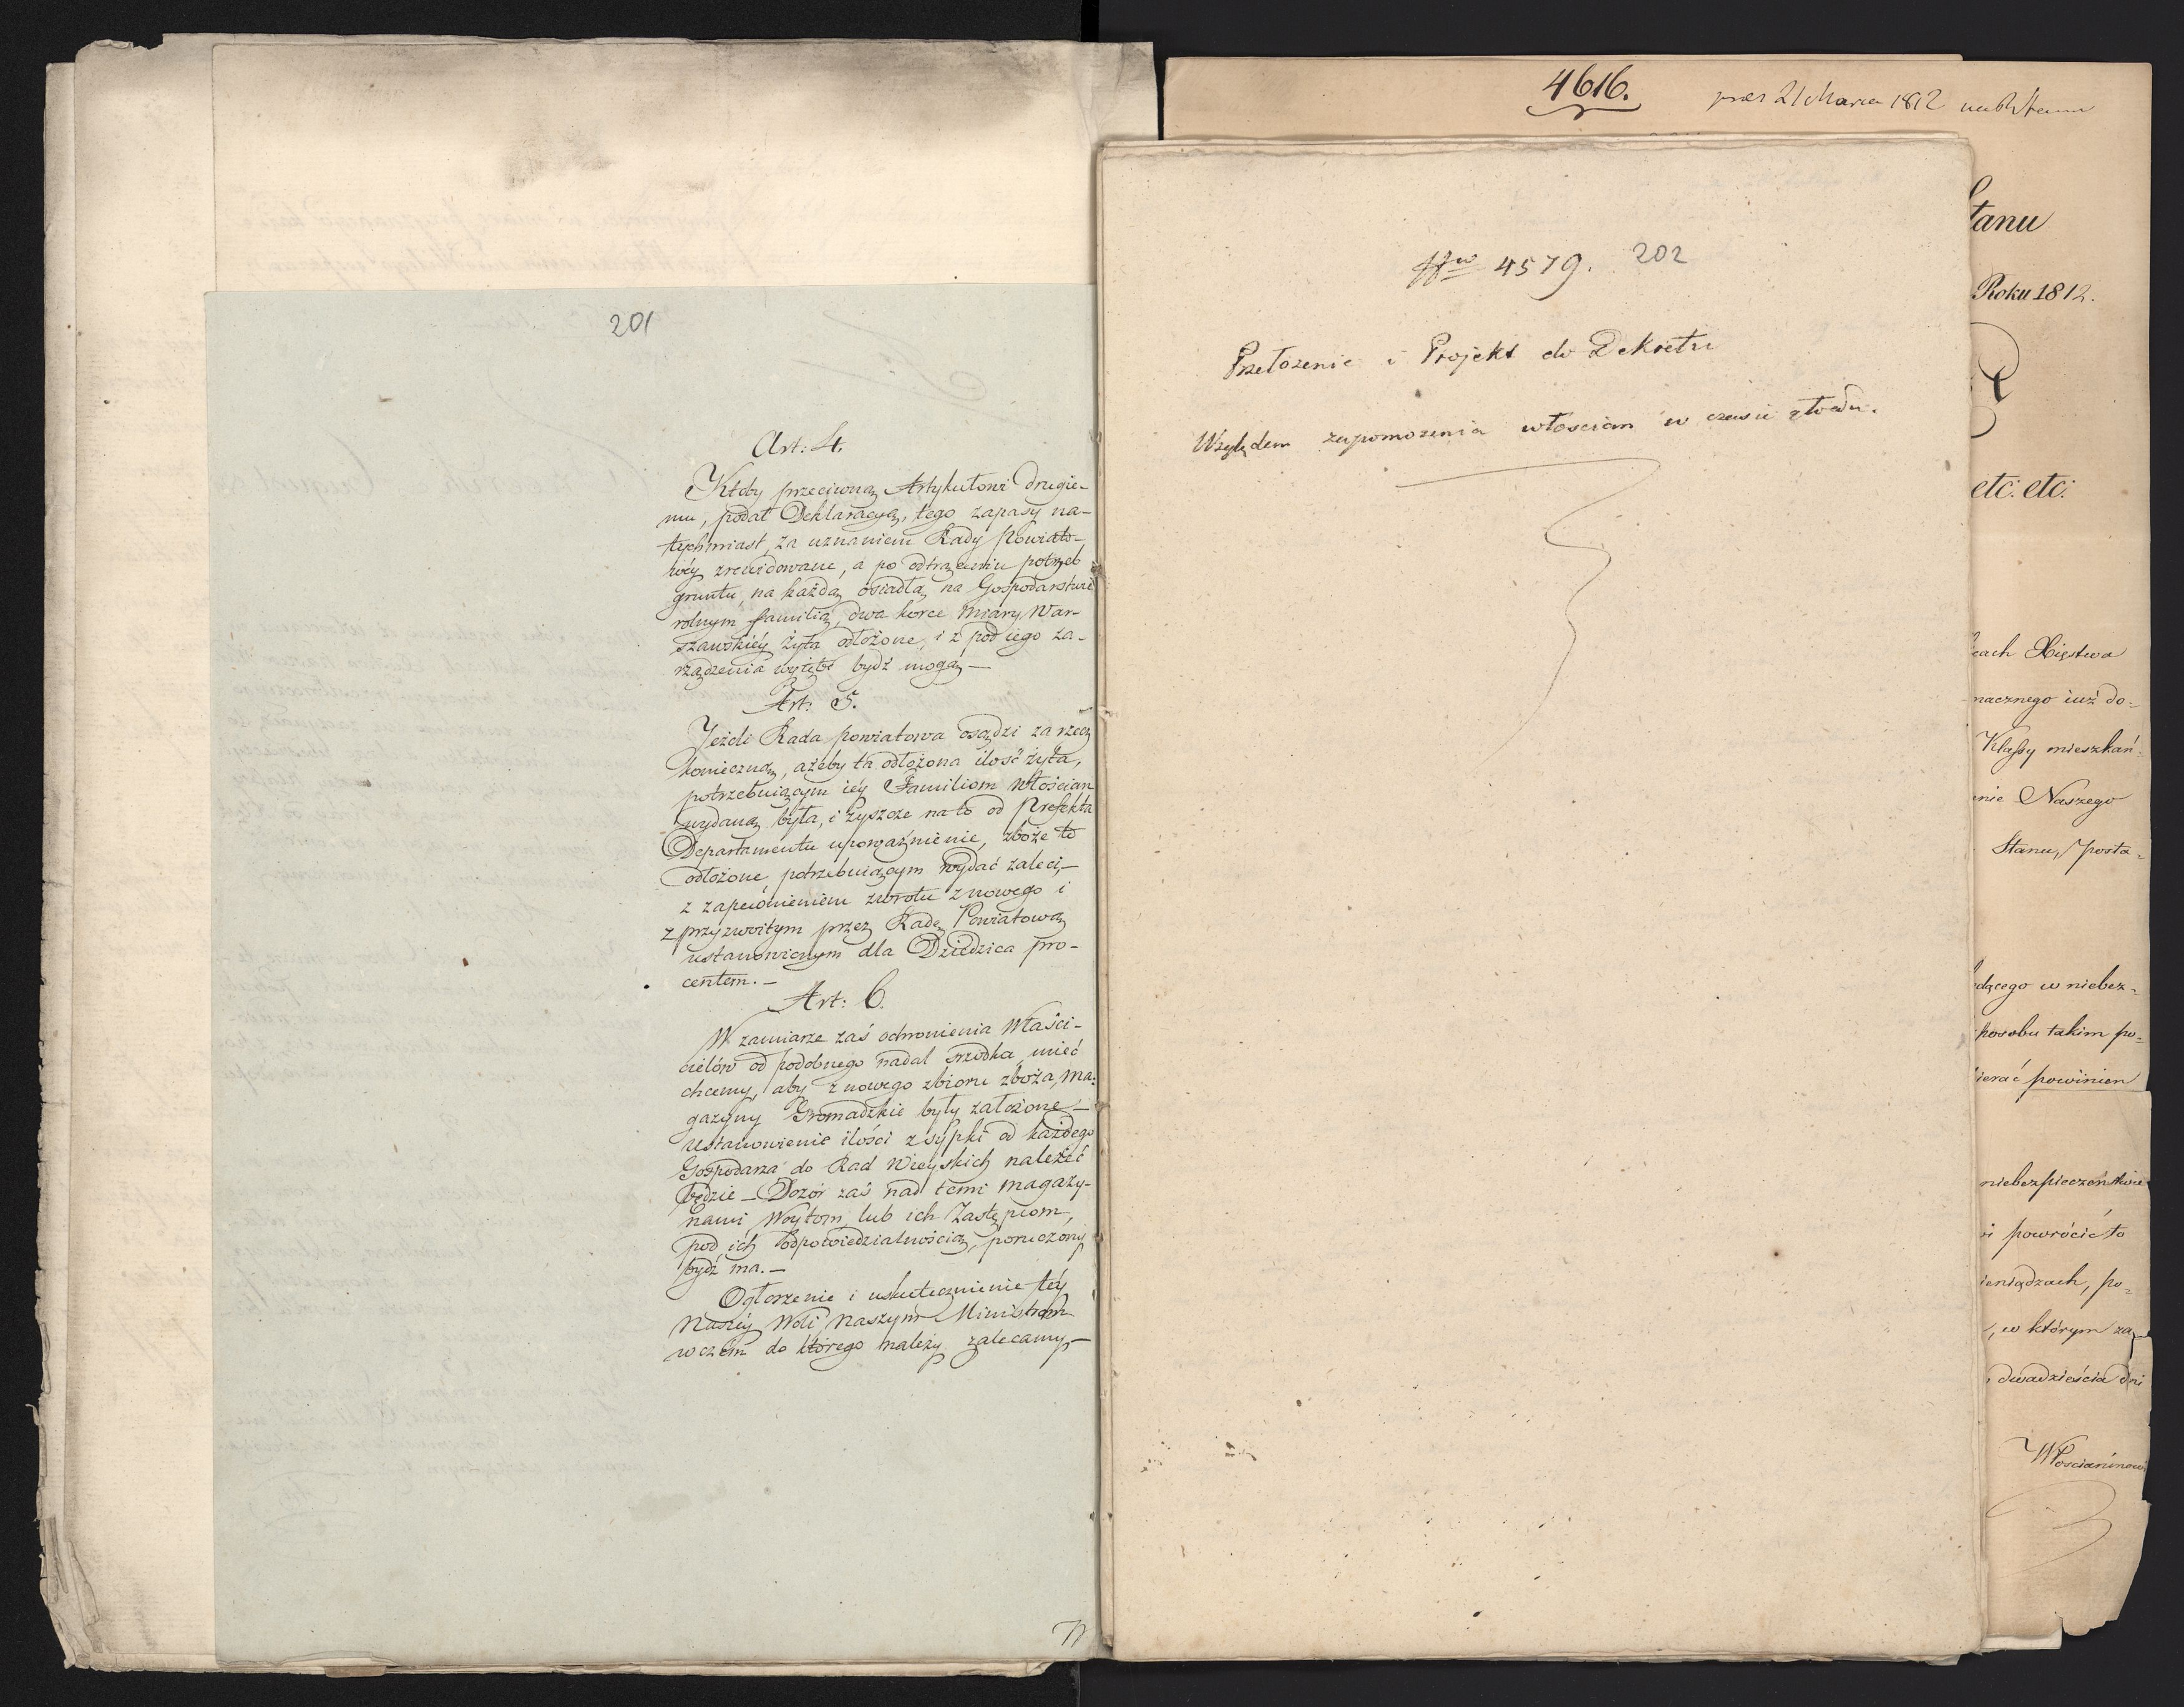 201
Art: 4.
Ktoby przeciwną Artykułowi drugie-
mu, podał Deklaracyą, tego zapasy na-
tychmiast, za uznaniem Rady Powiato-
wéy zrewidowane, a po odtrąceniu potrzeb
gruntu, na każdą osiadłą na Gospodarstwie
rolnym familią, dwa korce Miary War-
szawskiéy Żyta odłożone, i z pod iego za-
rządzenia wyięte bydź mogą —
Art: 5.
Jeżeli Rada powiatowa osądzi za rzecz
konieczną, ażeby ta odłożona ilość żyta,
potrzebuiącym iéy Familiom Włościan
wydaną była, i zyszcze na to od Prefekta
Departamentu upoważnienie, zboże to
odłożone potrzebuiącym wydać zaleci, —
z zapewnieniem zwrotu z nowego i
z przyzwoitym przez Radę Powiatową
ustanowionym dla Dziedzica pro-
centem. —
Art: 6.
W zamiarze zaś ochronienia Właści-
cielów od podobnego nadal srzodka, mieć
chcemy, aby z nowego zbioru zboża, Ma-
gazyny Gromadzkie były założone —
Ustanowienie ilości zsypki od każdego
Gospodarza do Rad Wieyskich należeć
będzie — Dozór zaś nad temi Magazy-
nami Woytom lub ich Zastępcom,
pod ich odpowiedzialnością, poruczony
bydź ma. —
Ogłoszenie i uskutecznienie téy
Naszéy Woli Naszym Ministrom
w czém do którego należy zalecamy —
4616.
21 Marca 1812
No 4579. 202
Przełożenie i Projekt do Dekretu
Względem zapomożenia włościan w czasie głodu.
Stanu
Roku 1812.
etc: etc:
cach Xięstwa
nacznego iuż do-
Klassy mieszkań-
nie Naszego
Stanu, posta-
dącego w niebez-
posobu takim po-
ierać powinien
niebezpieczeństwie
i powrócić to
ieniądzach, po-
, w którym za
dwadzieścia dni
Włościaninowi